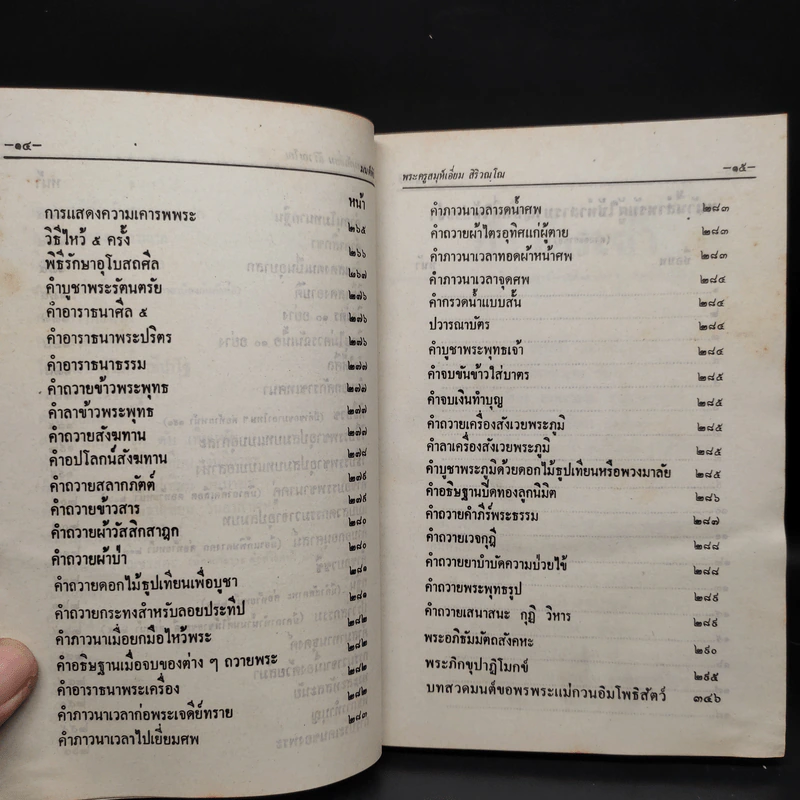 —๑๔—
หน้า
การแสดงความเคารพพระ ๒๖๕
วิธีไหว้ ๕ ครั้ง ๒๖๖
พิธีรักษาอุโบสถศีล ๒๖๗
คำบูชาพระรัตนตรัย ๒๗๖
คำอาราธนาศีล ๕ ๒๗๖
คำอาราธนาพระปริตร ๒๗๖
คำอาราธนาธรรม ๒๗๗
คำถวายข้าวพระพุทธ ๒๗๗
คำลาข้าวพระพุทธ ๒๗๗
คำถวายสังฆทาน ๒๗๗
คำอปโลกน์สังฆทาน ๒๗๘
คำถวายสลากภัตต์ ๒๗๙
คำถวายข้าวสาร ๒๗๙
คำถวายผ้าวัสสิกสาฎก ๒๘๐
คำถวายผ้าป่า ๒๘๐
คำถวายดอกไม้ธูปเทียนเพื่อบูชา ๒๘๑
คำถวายกระทงสำหรับลอยประทีป ๒๘๑
คำภาวนาเมื่อยกมือไหว้พระ ๒๘๒
คำอธิษฐานเมื่อจบของต่าง ๆ ถวายพระ ๒๘๒
คำอาราธนาพระเครื่อง ๒๘๒
คำภาวนาเวลาก่อพระเจดีย์ทราย ๒๘๒
คำภาวนาเวลาไปเยี่ยมศพ ๒๘๓
พระครูสมุห์เอี่ยม สิริวณฺโณ —๑๕—
คำภาวนาเวลารดน้ำศพ ๒๘๓
คำถวายผ้าไตรอุทิศแก่ผู้ตาย ๒๘๓
คำภาวนาเวลาทอดผ้าหน้าศพ ๒๘๓
คำภาวนาเวลาจุดศพ ๒๘๔
คำกรวดน้ำแบบสั้น ๒๘๔
ปวารณาบัตร ๒๘๔
คำบูชาพระพุทธเจ้า ๒๘๔
คำจบขันข้าวใส่บาตร ๒๘๕
คำจบเงินทำบุญ ๒๘๕
คำถวายเครื่องสังเวยพระภูมิ ๒๘๕
คำลาเครื่องสังเวยพระภูมิ ๒๘๕
คำบูชาพระภูมิด้วยดอกไม้ธูปเทียนหรือพวงมาลัย ๒๘๕
คำอธิษฐานปิดทองลูกนิมิต ๒๘๖
คำถวายคำภีร์พระธรรม ๒๘๗
คำถวายเวจกุฎี ๒๘๘
คำถวายยาบำบัดความป่วยไข้ ๒๘๘
คำถวายพระพุทธรูป ๒๘๙
คำถวายเสนาสนะ กุฏิ วิหาร ๒๘๙
พระอภิธัมมัตถสังคหะ ๒๙๐
พระภิกขุปาฏิโมกข์ ๒๙๕
บทสวดมนต์ขอพรพระแม่กวนอิมโพธิสัตว์ ๓๔๖